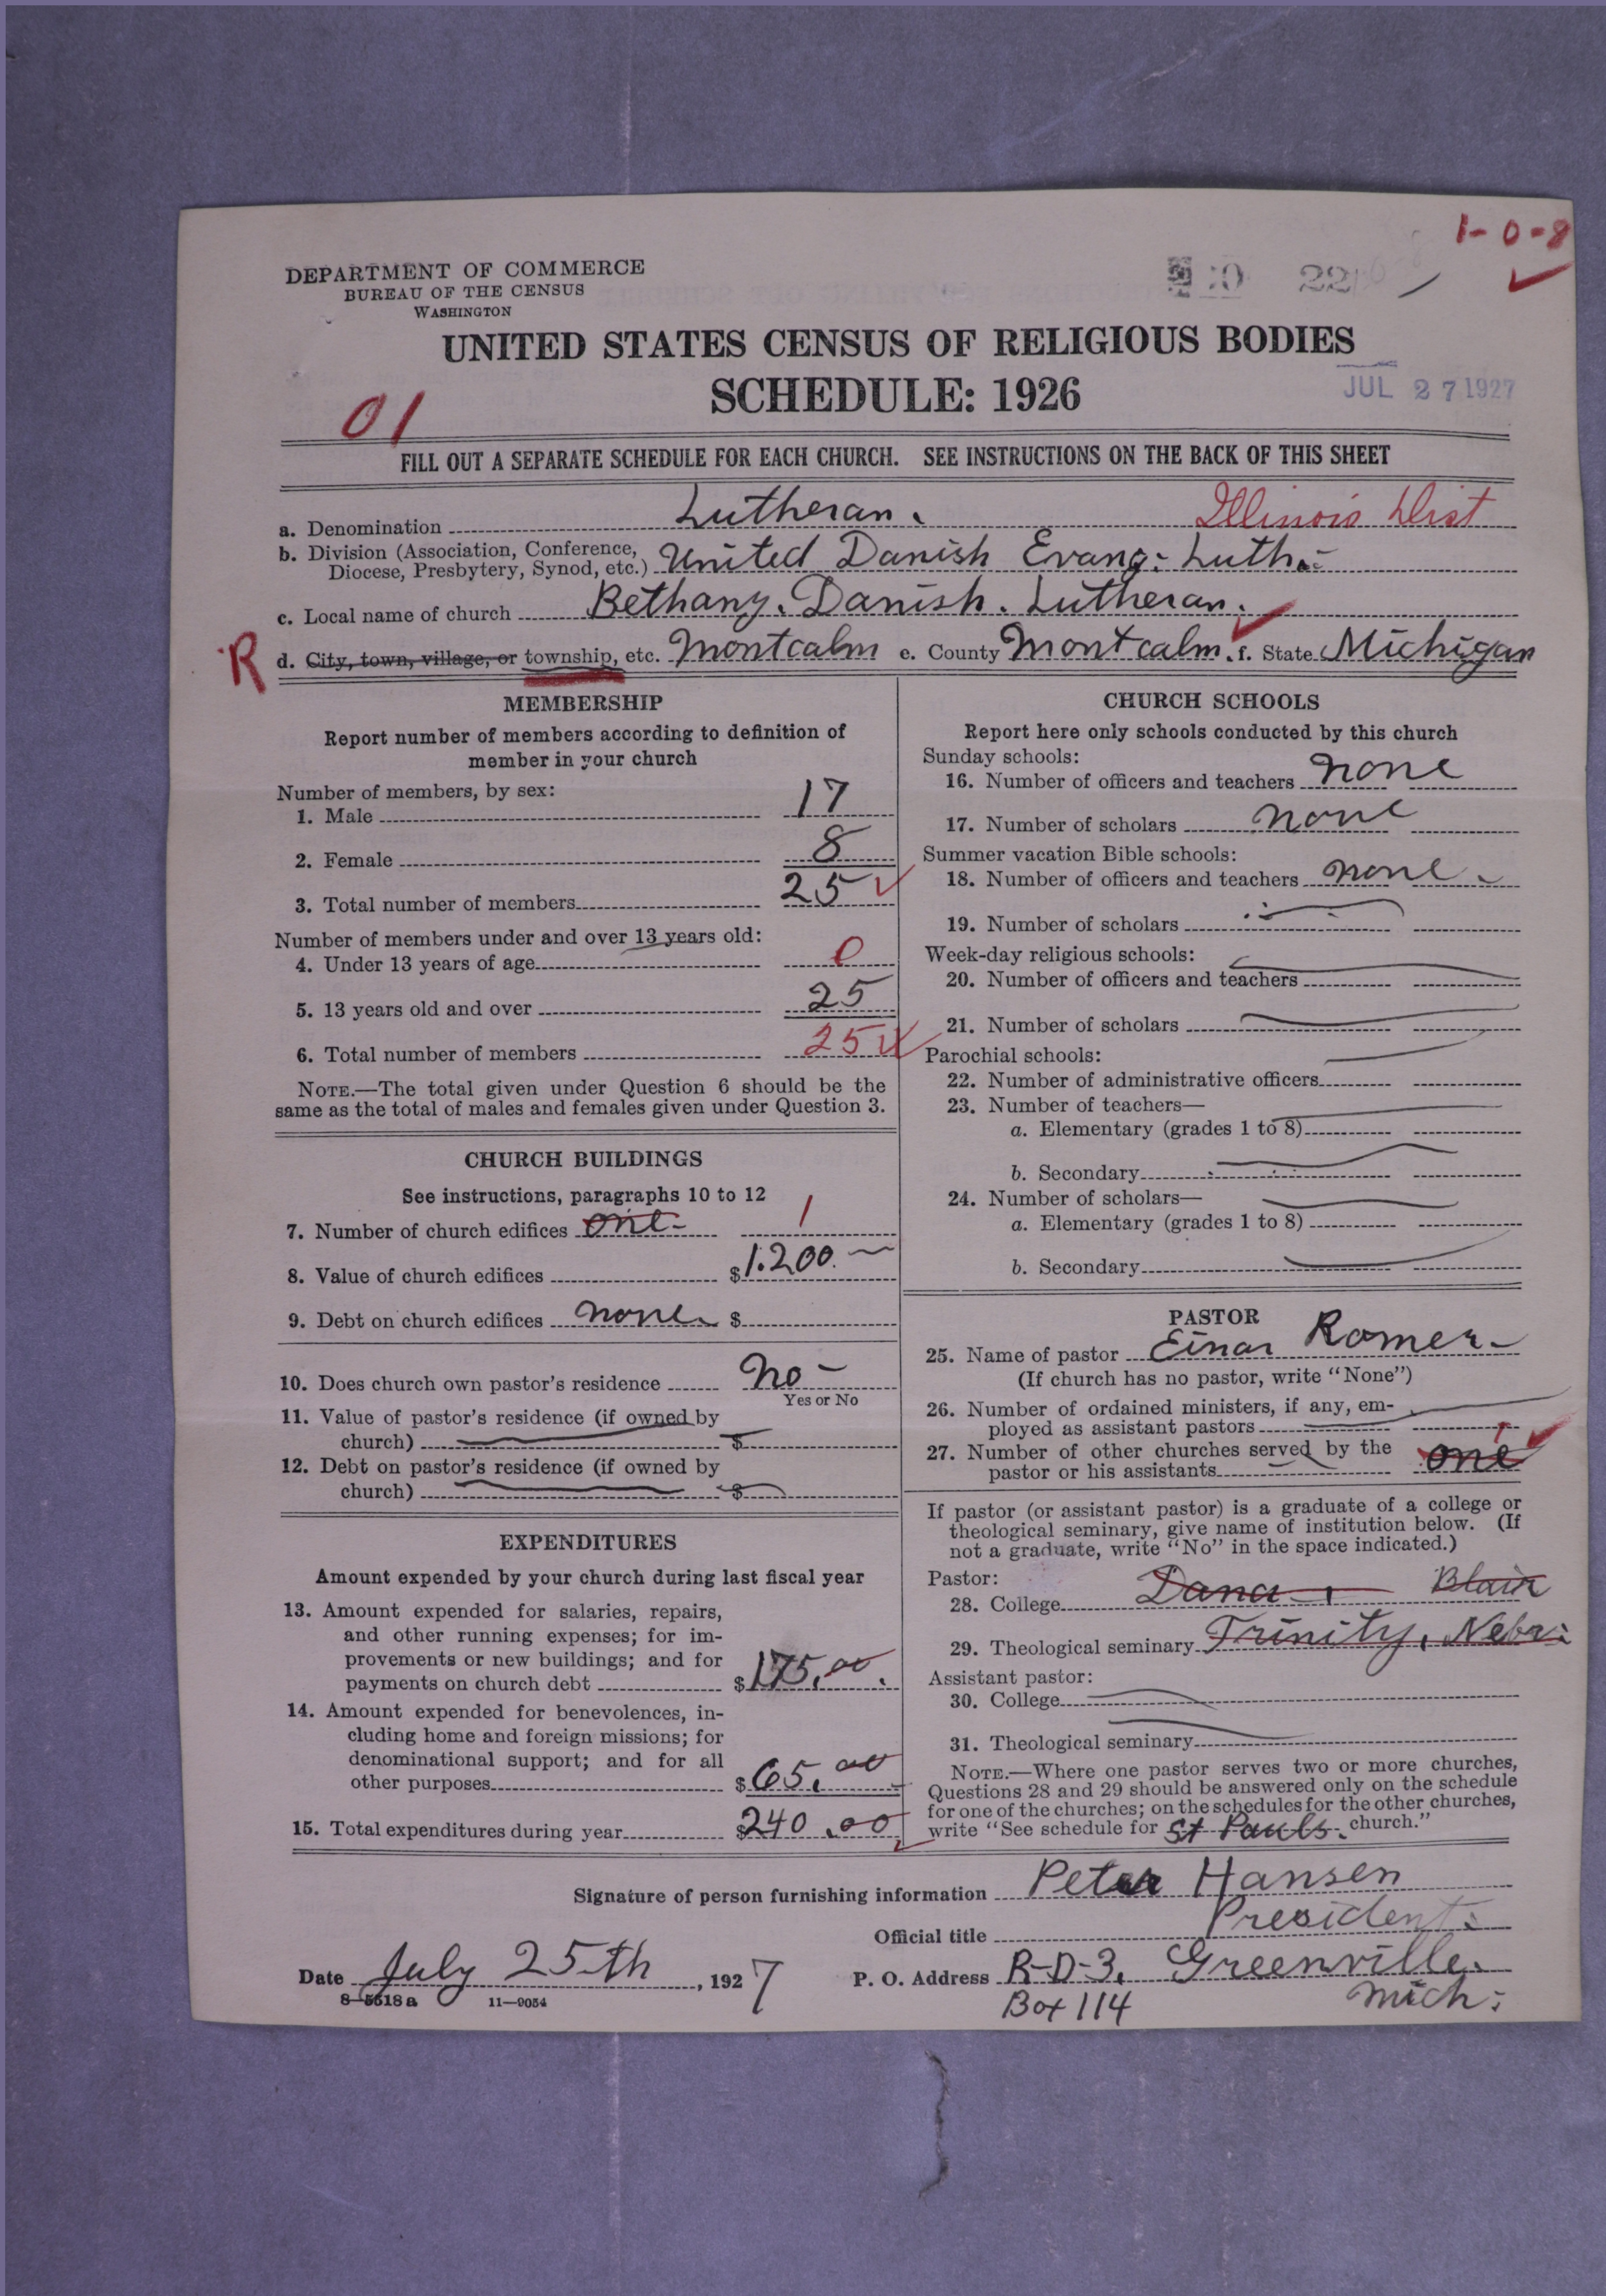 1-0-8
DEPARTMENT OF COMMERCE
BUREAU OF THE CENSUS
WASHINGTON
22
UNITED STATES CENSUS OF RELIGIOUS BODIES
SCHEDULE: 1926
JUL 27 1927
01
FILL OUT A SEPARATE SCHEDULE FOR EACH CHURCH. SEE INSTRUCTIONS ON THE BACK OF THIS SHEET
a. Denomination Lutheran. Illinois Dist
b. Division (Association, Conference,
Diocese, Presbytery, Synod, etc.) United Danish Evang: Luth:
c. Local name of church Bethany. Danish. Lutheran.
R d. City, town, village, or township, etc. Montcalm e. County Montcalm. f. State Michigan
MEMBERSHIP
Report number of members according to definition of
member in your church
Number of members, by sex:
1. Male 17
2. Female 8
3. Total number of members 25
Number of members under and over 13 years old:
4. Under 13 years of age 0
5. 13 years old and over 25
6. Total number of members 25
NOTE.—The total given under Question 6 should be the
same as the total of males and females given under Question 3.
CHURCH BUILDINGS
See instructions, paragraphs 10 to 12
7. Number of church edifices one 1
8. Value of church edifices $1.200.
9. Debt on church edifices none $
10. Does church own pastor's residence No
Yes or No
11. Value of pastor's residence (if owned by
church) $
12. Debt on pastor's residence (if owned by
church) $
EXPENDITURES
Amount expended by your church during last fiscal year
13. Amount expended for salaries, repairs,
and other running expenses; for im-
provements or new buildings; and for
payments on church debt $175.00.
14. Amount expended for benevolences, in-
cluding home and foreign missions; for
denominational support; and for all
other purposes $65.00
15. Total expenditures during year $240.00
CHURCH SCHOOLS
Report here only schools conducted by this church
Sunday schools:
16. Number of officers and teachers none
17. Number of scholars none
Summer vacation Bible schools:
18. Number of officers and teachers none
19. Number of scholars
Week-day religious schools:
20. Number of officers and teachers
21. Number of scholars
Parochial schools:
22. Number of administrative officers
23. Number of teachers—
a. Elementary (grades 1 to 8)
b. Secondary
24. Number of scholars—
a. Elementary (grades 1 to 8)
b. Secondary
PASTOR
25. Name of pastor Einar Romer
(If church has no pastor, write "None")
26. Number of ordained ministers, if any, em-
ployed as assistant pastors
27. Number of other churches served by the
pastor or his assistants one 1
If pastor (or assistant pastor) is a graduate of a college or
theological seminary, give name of institution below. (If
not a graduate, write "No" in the space indicated.)
Pastor:
28. College Dana, Blair
29. Theological seminary Trinity, Nebr:
Assistant pastor:
30. College
31. Theological seminary
NOTE.—Where one pastor serves two or more churches,
Questions 28 and 29 should be answered only on the schedule
for one of the churches; on the schedules for the other churches,
write "See schedule for St Pauls. church."
Signature of person furnishing information Peter Hansen
Official title President.
Date July 25th, 1927 P. O. Address R-D-3, Greenville.
8-5518 a 11—9054 Box 114 Mich: